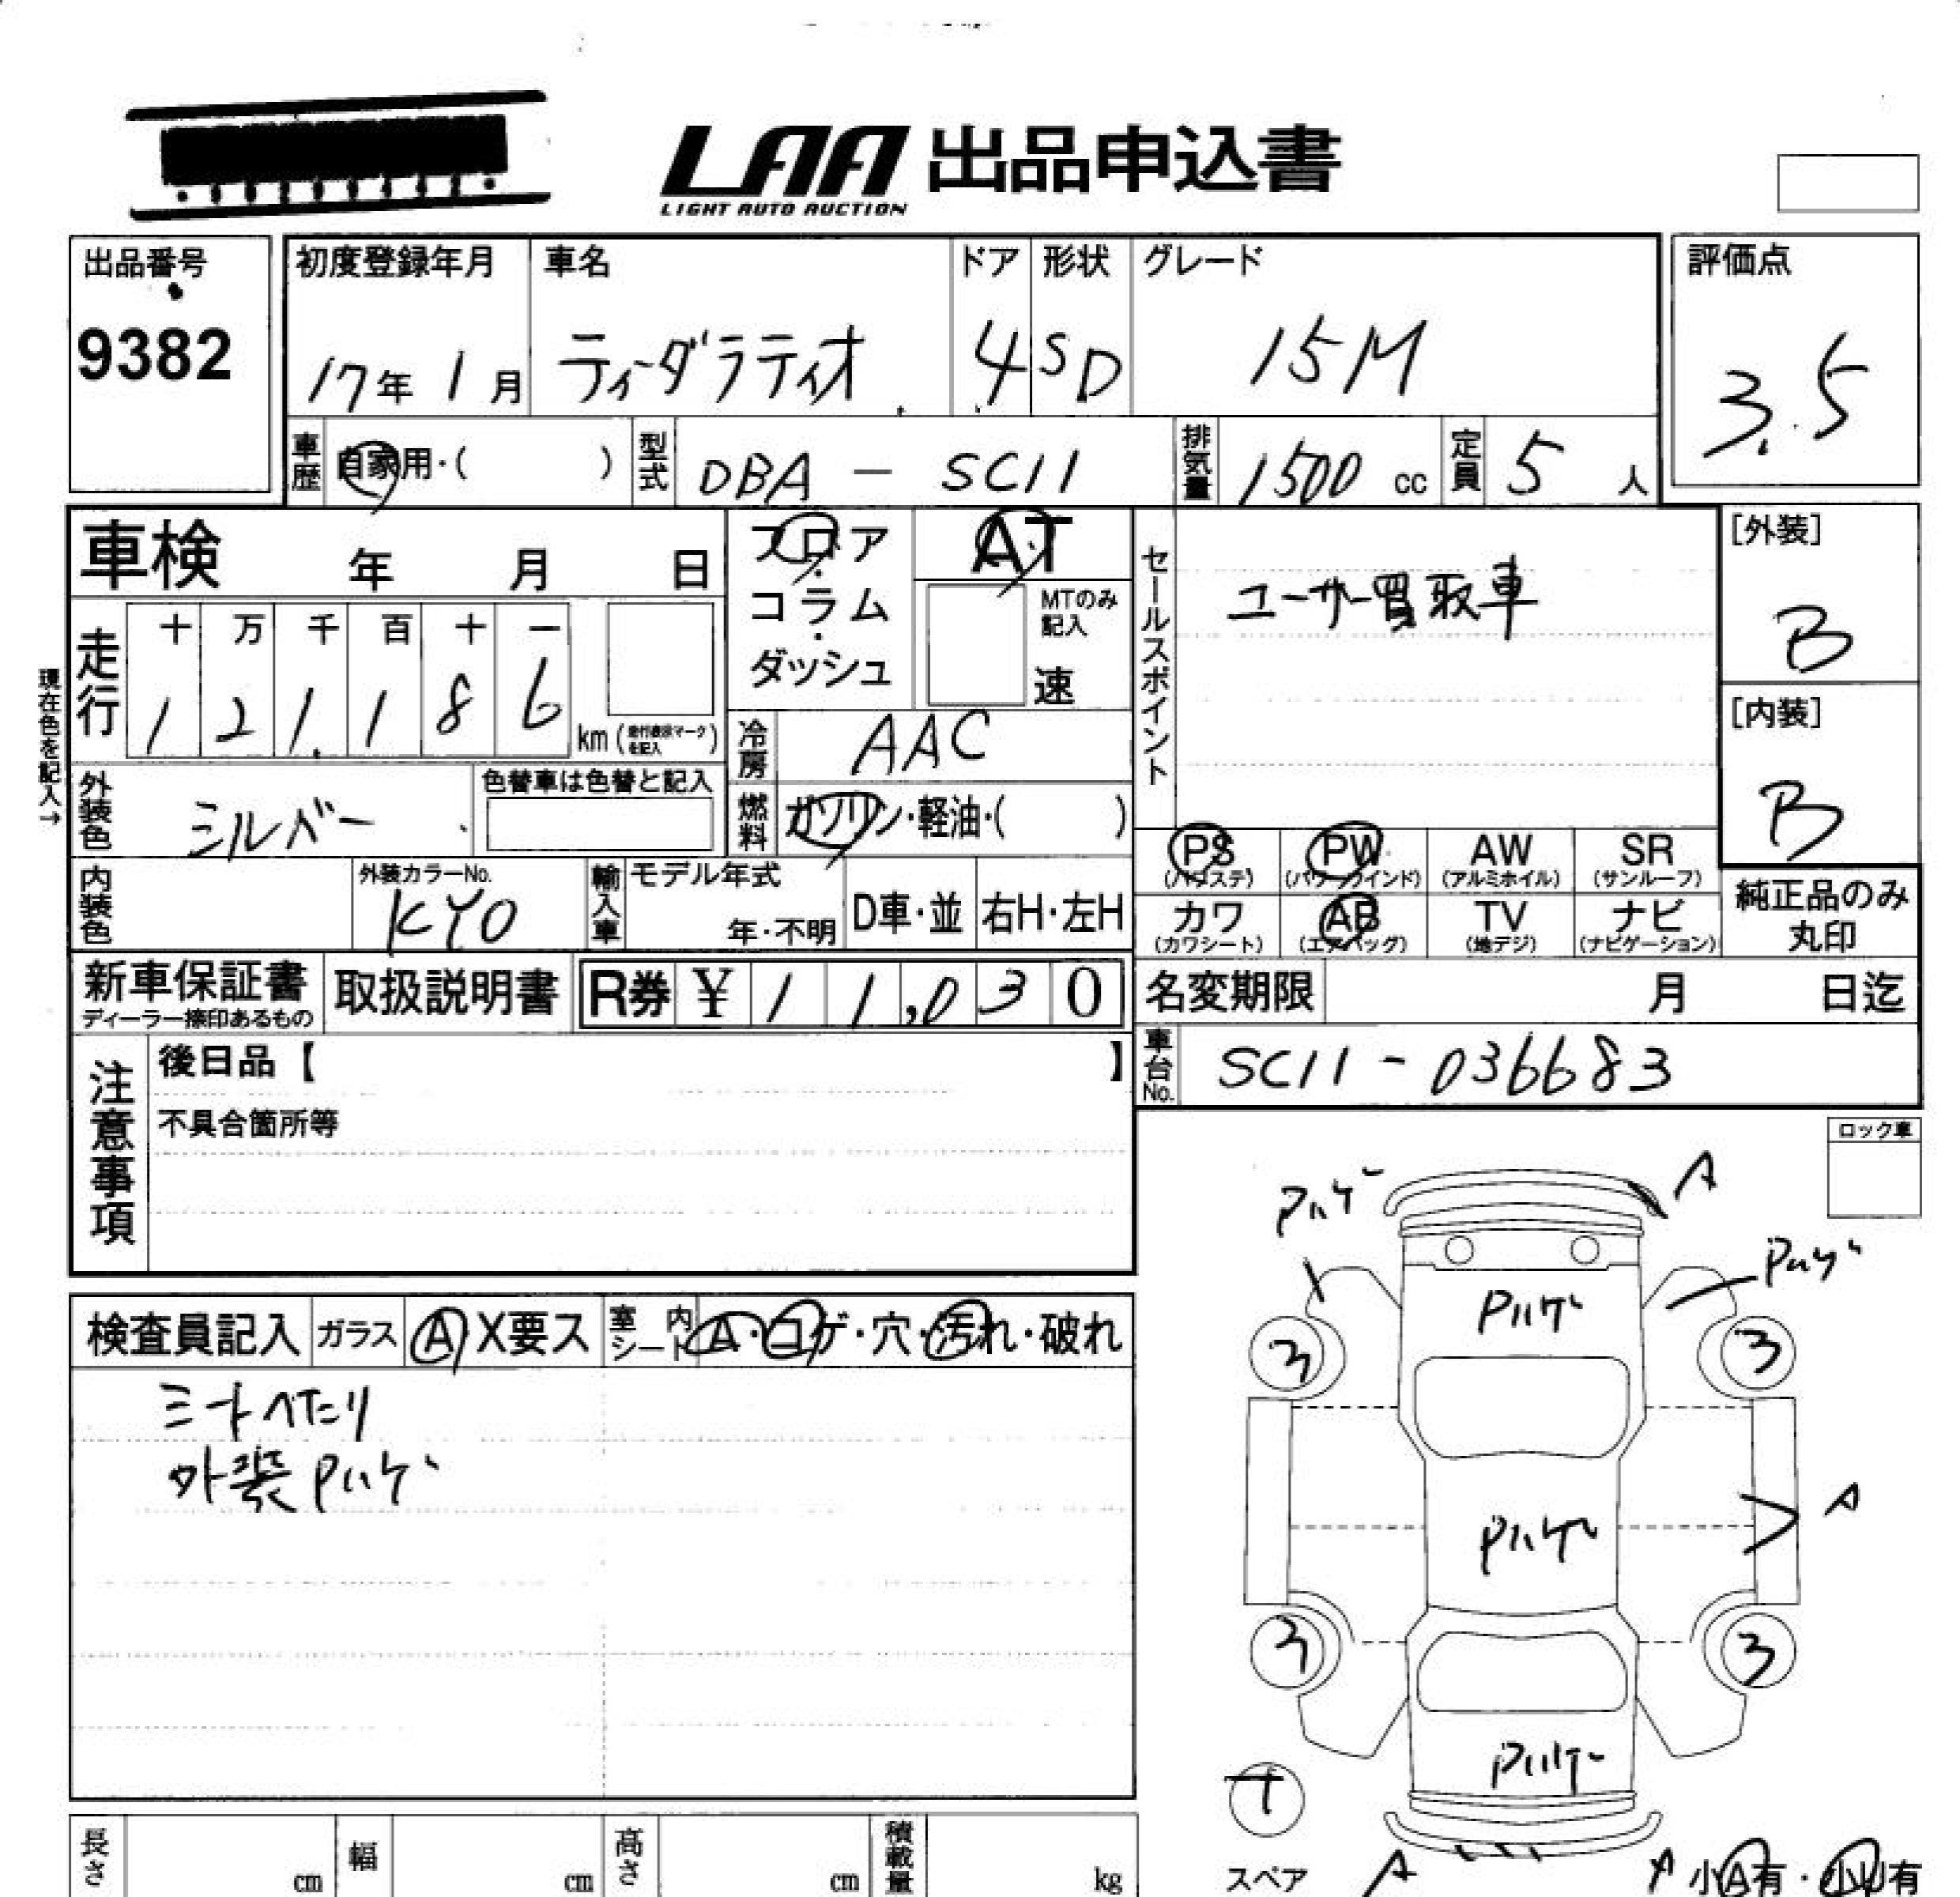 LAA 出品申込書
LIGHT AUTO AUCTION
出品番号
9382
初度登録年月 車名 ドア 形状 グレード 評価点
17年 1月 ティーダラティオ 4 SD 15M 3.5
車歴 自家用・( ) 型式 DBA - SC11 排気量 1500 cc 定員 5 人
車検 年 月 日
フロア・コラム・ダッシュ
AT
MTのみ記入
速
セールスポイント
ユーザー買取車
[外装]
B
[内装]
B
現在色を記入→
走行 十 万 千 百 十 一
1 2 1, 1 8 6 km
冷房 AAC
外装色 シルバー 色替車は色替と記入
燃料 ガソリン・軽油・( )
内装色 外装カラーNo.
KY0
輸入車 モデル年式
年・不明 D車・並 右H・左H
PS (パワステ) PW (パワーウインド) AW (アルミホイル) SR (サンルーフ)
カワ (カワシート) AB (エアバッグ) TV (地デジ) ナビ (ナビゲーション)
純正品のみ
丸印
新車保証書
ディーラー捺印あるもの
取扱説明書 R券 ¥ 1 1,0 3 0
名変期限 月 日迄
車台No. SC11 - 036683
注意事項
後日品【 】
不具合箇所等
ロック車
検査員記入 ガラス A X要ス 室内シート A・コゲ・穴・汚れ・破れ
シートへたり
外装Pハゲ
Pハゲ A
Pハゲ
Pハゲ
3 3
Pハゲ
A
3 3
Pハゲ
スペア A
小A有・小U有
長さ cm 幅 cm 高さ cm 積載量 kg